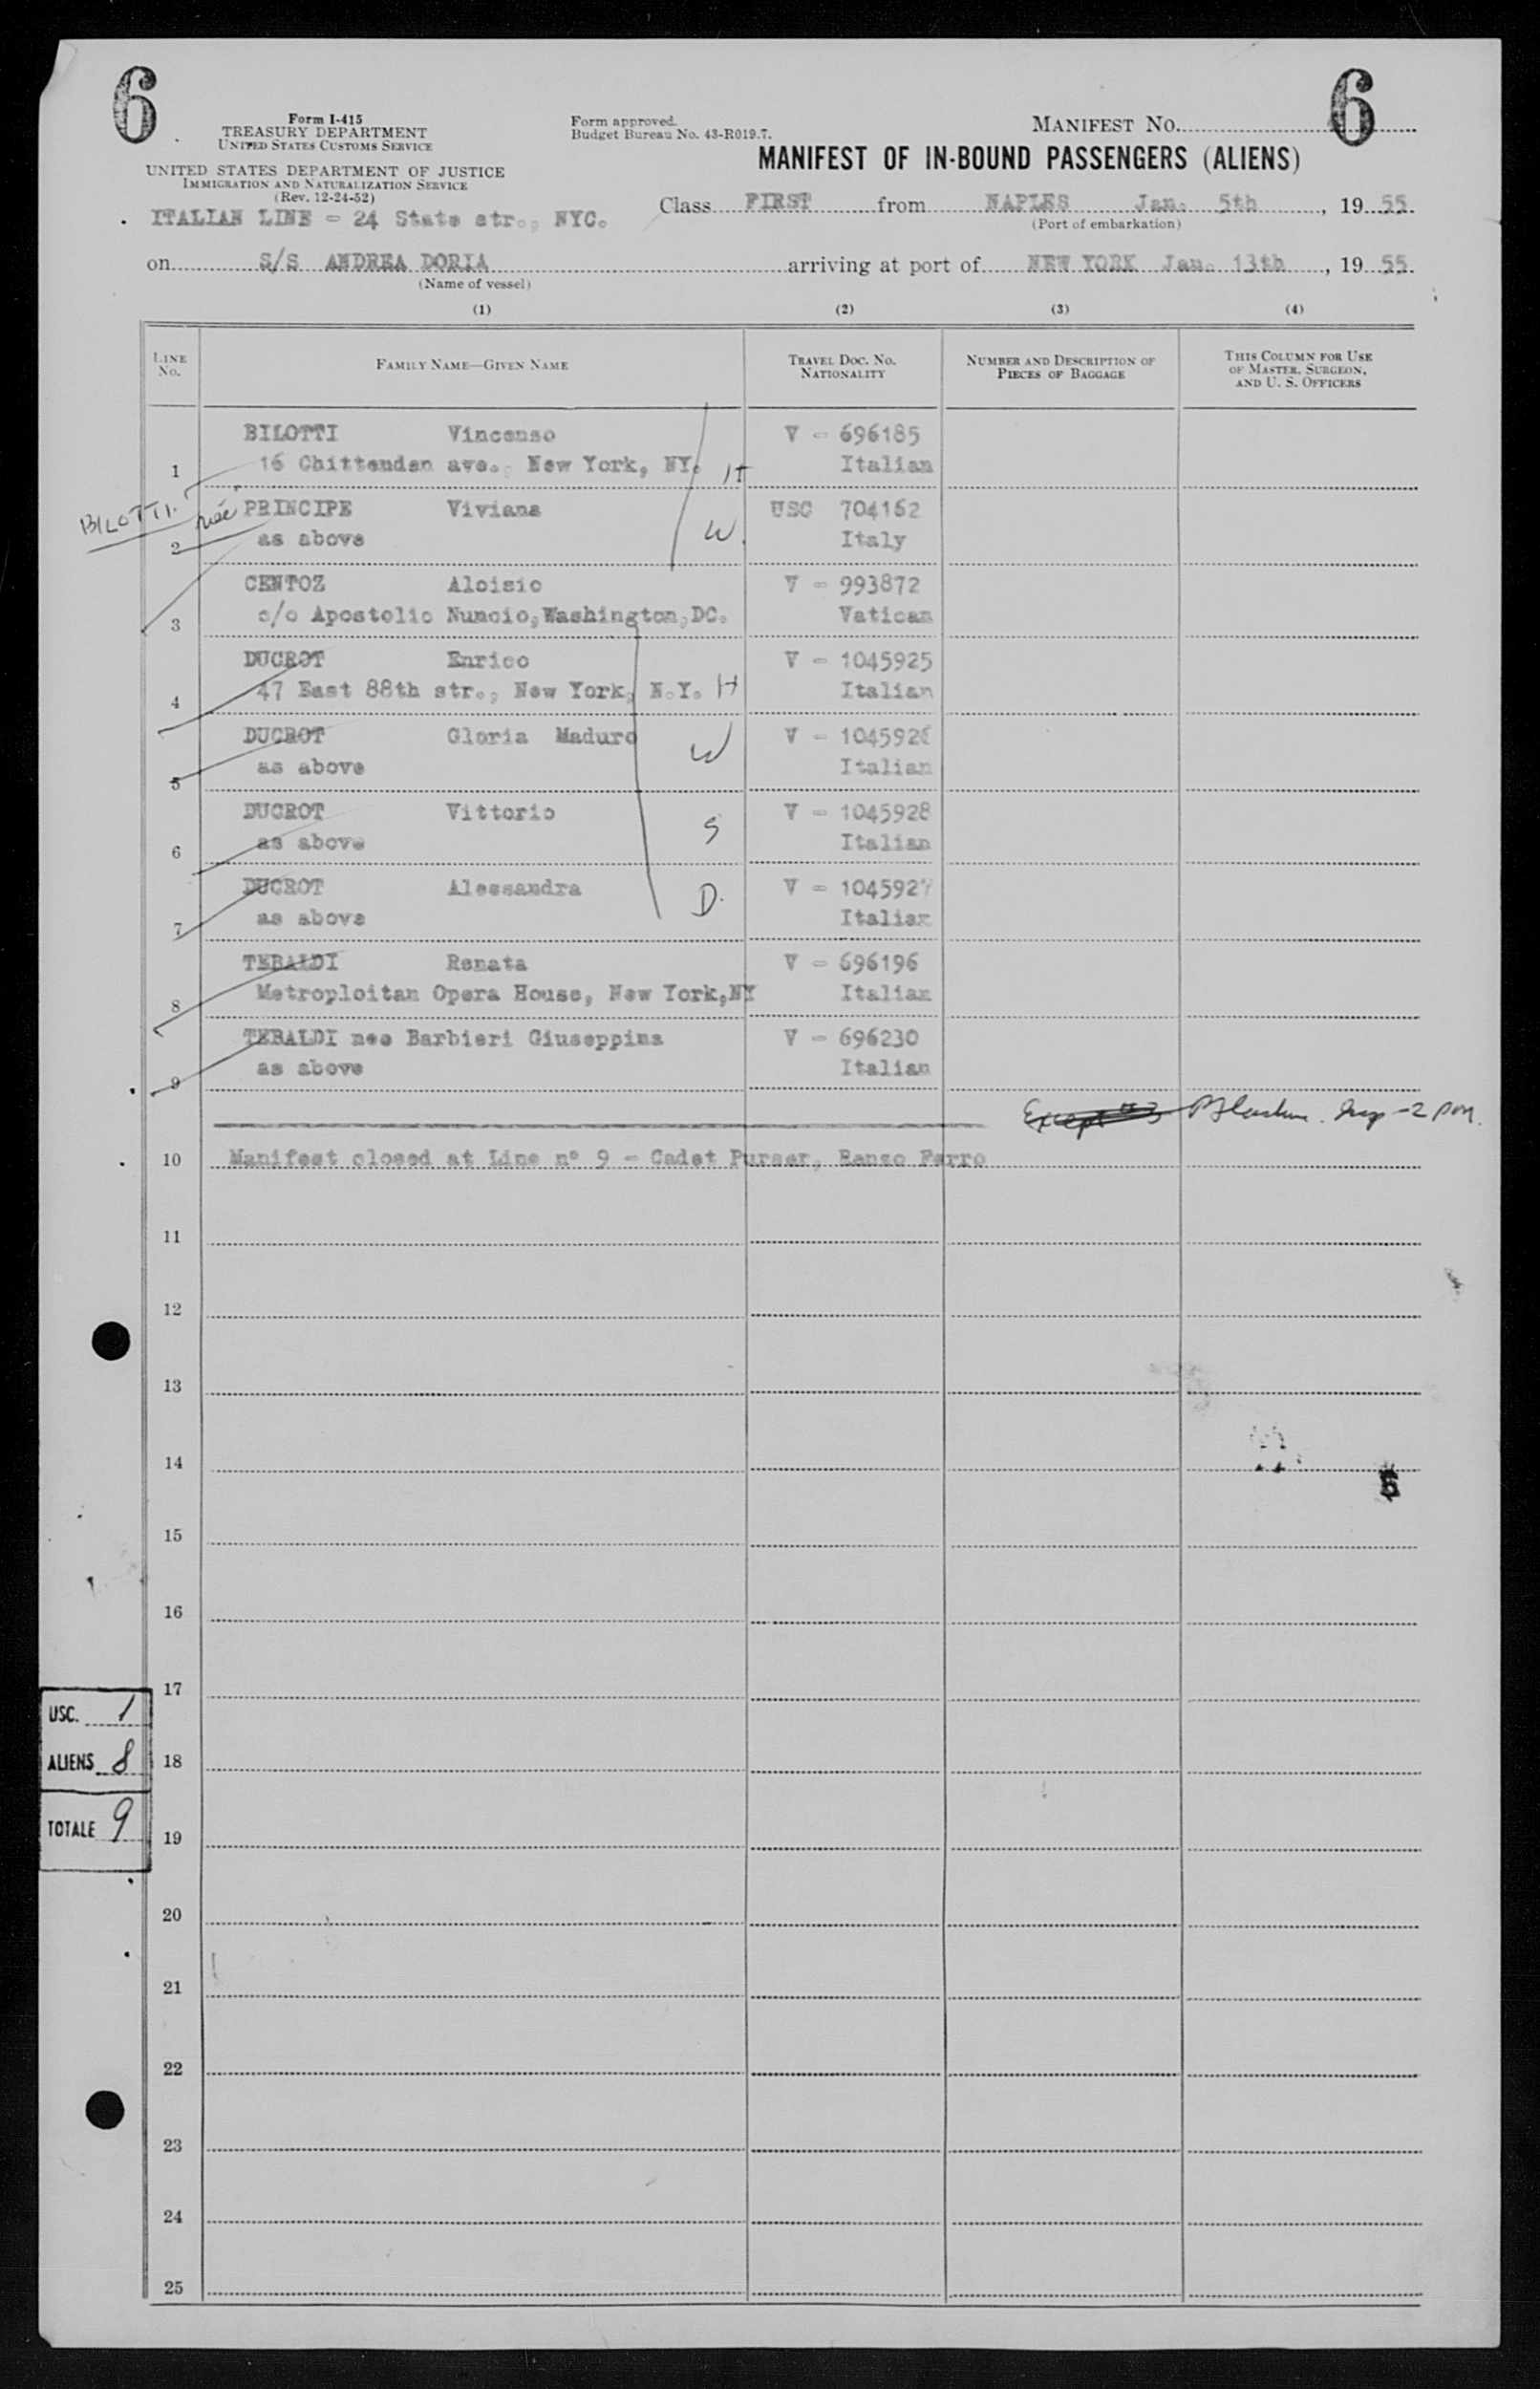 6
6
Form I-415
TREASURY DEPARTMENT
UNITED STATES CUSTOMS SERVICE
UNITED STATES DEPARTMENT OF JUSTICE
IMMIGRATION AND NATURALIZATION SERVICE
(Rev. 12-24-52)
Form approved.
Budget Bureau No. 43-R019.7.
MANIFEST NO.
MANIFEST OF IN-BOUND PASSENGERS (ALIENS)
ITALIAN LINE - 24 State str., NYC.
Class FIRST from NAPLES Jan. 5th, 19 55
(Port of embarkation)
on S/S ANDREA DORIA arriving at port of NEW YORK Jan. 13th, 19 55
(Name of vessel)
(1) (2) (3) (4)
LINE NO. FAMILY NAME—GIVEN NAME TRAVEL DOC. NO. NATIONALITY NUMBER AND DESCRIPTION OF PIECES OF BAGGAGE THIS COLUMN FOR USE OF MASTER, SURGEON, AND U. S. OFFICERS
BILOTTI Vincenso V - 696185
1 16 Chittenden ave., New York, NY. H Italian
BILOTTI. née PRINCIPE Viviana USC 704162
2 as above W. Italy
CENTOZ Aloisio V - 993872
3 c/o Apostolic Nuncio,Washington,DC. Vatican
DUCROT Enrico V - 1045925
4 47 East 88th str., New York, N.Y. H Italian
DUCROT Gloria Maduro V - 1045926
5 as above W Italian
DUCROT Vittorio V - 1045928
6 as above S Italian
DUCROT Alessandra V - 1045927
7 as above D. Italian
TEBALDI Renata V - 696196
8 Metroploitan Opera House, New York,NY Italian
TEBALDI nee Barbieri Giuseppina V - 696230
9 as above Italian
Except #3
-2 pm.
10 Manifest closed at Line n° 9 - Cadet Purser, Renzo Ferro
11
12
13
14
15
16
17
USC. 1
ALIENS 8
18
TOTALE 9
19
20
21
22
23
24
25